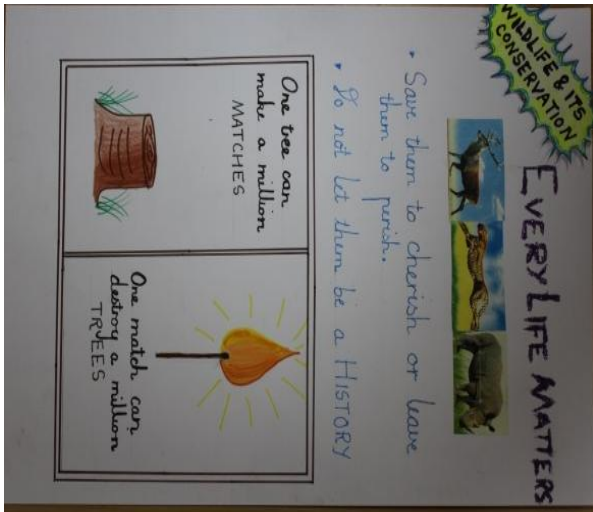 WILDLIFE & ITS
CONSERVATION
EVERY LIFE MATTERS
• Save them to cherish or leave
them to perish.
• Do not let them be a HISTORY
One tree can
make a million
MATCHES
One match can
destroy a million
TRVEES